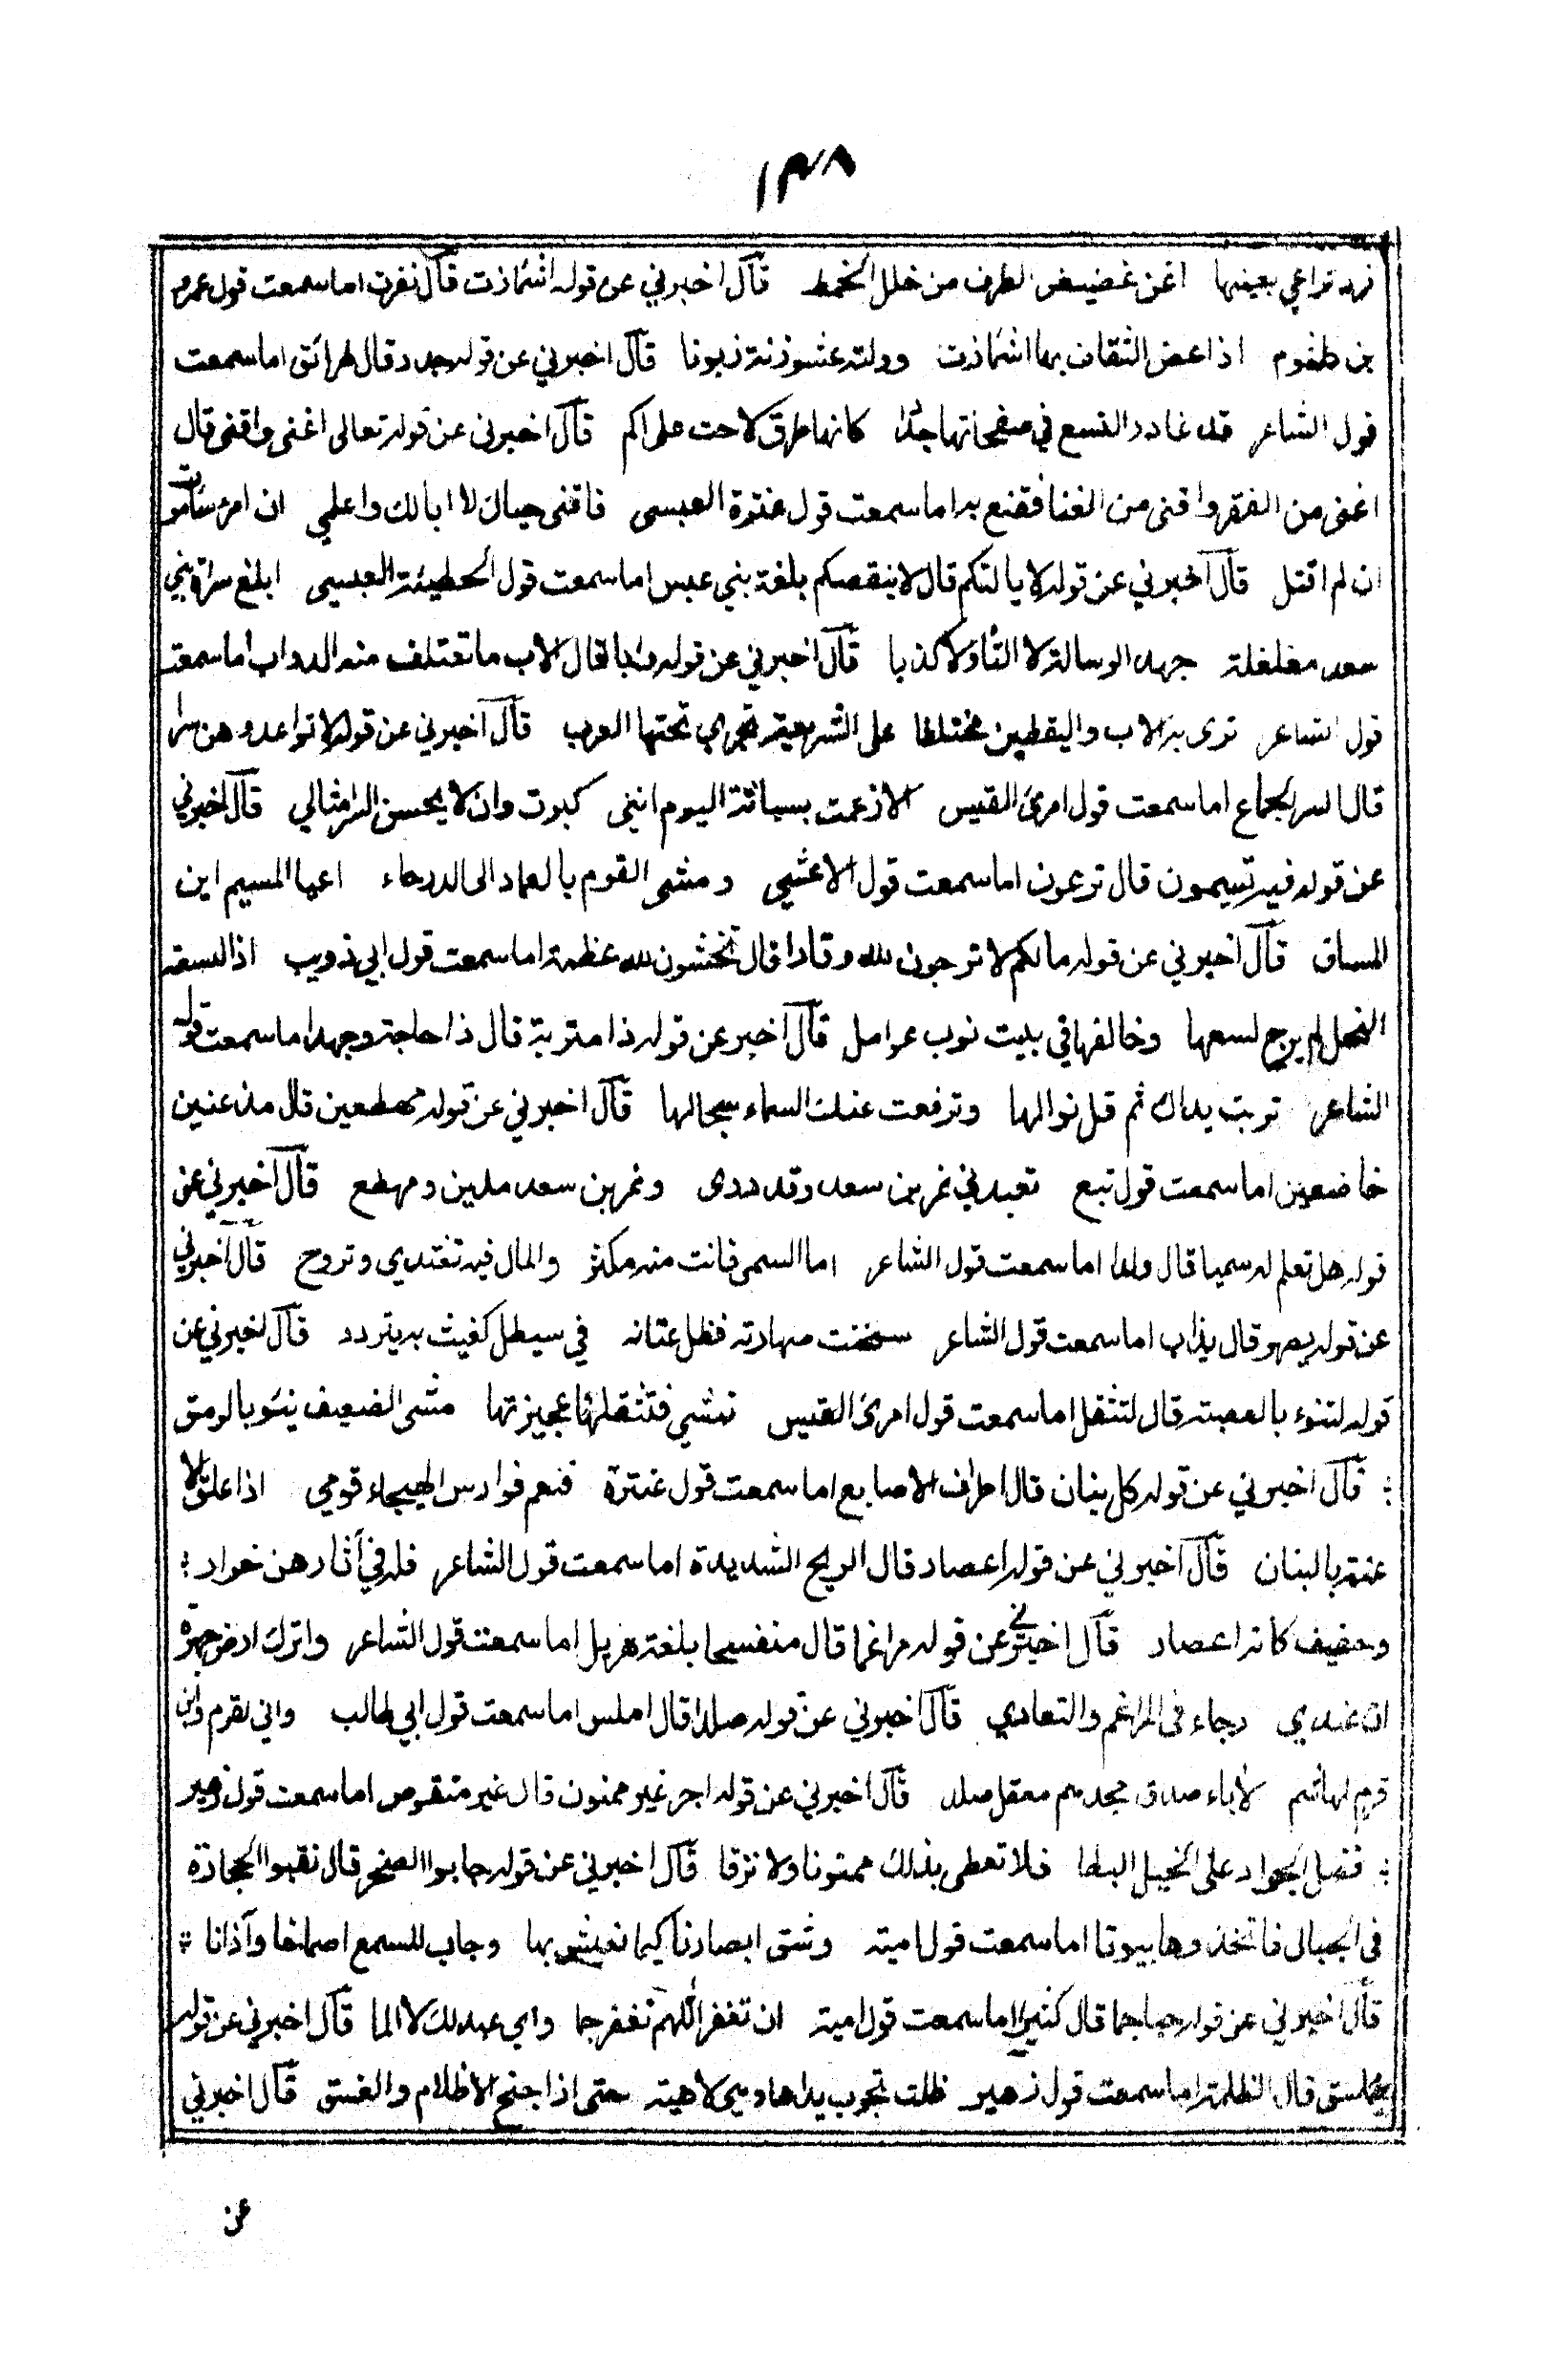 ١٣٨
فرد تراعي بعينها اغن غضيض الطرف من خلل الخمط قال اخبرني عن قوله اشمازت قال نفرت اما سمعت قول عمرو
بن كلثوم اذا عض الثقاف بها اشمازت وولته عشوزنة زبونا قال اخبرني عن قوله جدد قال طرائق اما سمعت
قول الشاعر قد غادر النسع في صفحاتها جددا كانها طرق لاحت على اكم قال اخبرني عن قوله تعالى اغنى واقنى قال
اغنى من الفقر واقنى من الغنا فقنع به اما سمعت قول عنترة العبسى فاقنى حياك لا ابالك واعلمي ان امرء ساموت
ان لم اقتل قال اخبرني عن قوله لا يالتكم قال لا ينقصكم بلغة بني عبس اما سمعت قول الحطيئة العبسي ابلغ سراة بني
سعد مغلغلة جهد الرسالة لا التا ولا كذبا قال اخبرني عن قوله وابا قال الاب ما تعتلف منه الدواب اما سمعت
قول الشاعر ترى به الاب واليقطين مختلطا على الشريعة تجري تحتها الغرب قال اخبرني عن قوله لا تواعدوهن سرا
قال السر الجماع اما سمعت قول امرئ القيس الا زعمت بسباسة اليوم انني كبرت وان لا يحسن السر امثالي قال اخبرني
عن قوله فيه تسيمون قال ترعون اما سمعت قول الاعشي ومشى القوم بالعماد الى الدرحاء اعيا المسيم اين
المساق قال اخبرني عن قوله مالكم لا ترجون لله وقارا قال تخشون لله عظمة اما سمعت قول ابي ذويب اذا لسعته
النحل لم يرج لسعها وخالفها في بيت نوب عوامل قال اخبر عن قوله ذا متربة قال ذا حاجة وجهد اما سمعت قول
الشاعر تربت يداك ثم قل نوالها وترفعت عنك السماء سجالها قال اخبرني عن قوله مهطعين قال مذعنين
خاضعين اما سمعت قول تبع تعبدني نمر بن سعد وقد درى ونمر بن سعد مدين ومهطع قال اخبرني عن
قوله هل تعلم له سميا قال ولدا اما سمعت قول الشاعر اما السمى فانت منه مكثر والمال فيه تغتدي وتروح قال اخبرني
عن قوله يصهر قال يذاب اما سمعت قول الشاعر سخنت صهارته فظل عثانه في سيطل كفيت به يتردد قال اخبرني عن
قوله لتنوء بالعصبة قال لتثقل اما سمعت قول امرئ القيس تمشي فتثقلها عجيزتها مشى الضعيف ينوء بالوسق
؛ قال اخبرني عن قوله كل بنان قال اطراف الاصابع اما سمعت قول عنترة فنعم فوارس الهيجاء قومي اذا علق الا
عنة بالبنان قال اخبرني عن قوله اعصار قال الريح الشديدة اما سمعت قول الشاعر فله في آثارهن خوار ؛
وحفيف كانه اعصار قال اخبرني عن قوله مراغما قال منفسحا بلغة هزيل اما سمعت قول الشاعر واترك ارض جهرة
ان عندي رجاء في المراغم والتعادي قال اخبرني عن قوله صلدا قال املس اما سمعت قول ابي طالب واني لقرم وابن
قرم لهاشم لاباء صدق مجدهم معقل صلد قال اخبرني عن قوله اجر غير ممنون قال غير منقوص اما سمعت قول زهير
؛ فضل الجواد على الخيل البطا فلا تعطى بذلك ممنونا ولا نزقا قال اخبرني عن قوله جابوا الصخر قال نقبوا الحجارة
في الجبال فاتخذوها بيوتا اما سمعت قول امية وشق ابصارنا كيما نعيش بها وجاب للسمع اصماخا وآذانا ؛
قال اخبرني عن قوله حبا جما قال كثيرا اما سمعت قول امية ان تغفر اللهم تغفر جما واي عبد لك لا الما قال اخبرني عن قوله
غاسق قال الظلمة اما سمعت قول زهير ظلت تجوب يداها وهي لاهية حتى اذا جنح الاظلام والغسق قال اخبرني
عن